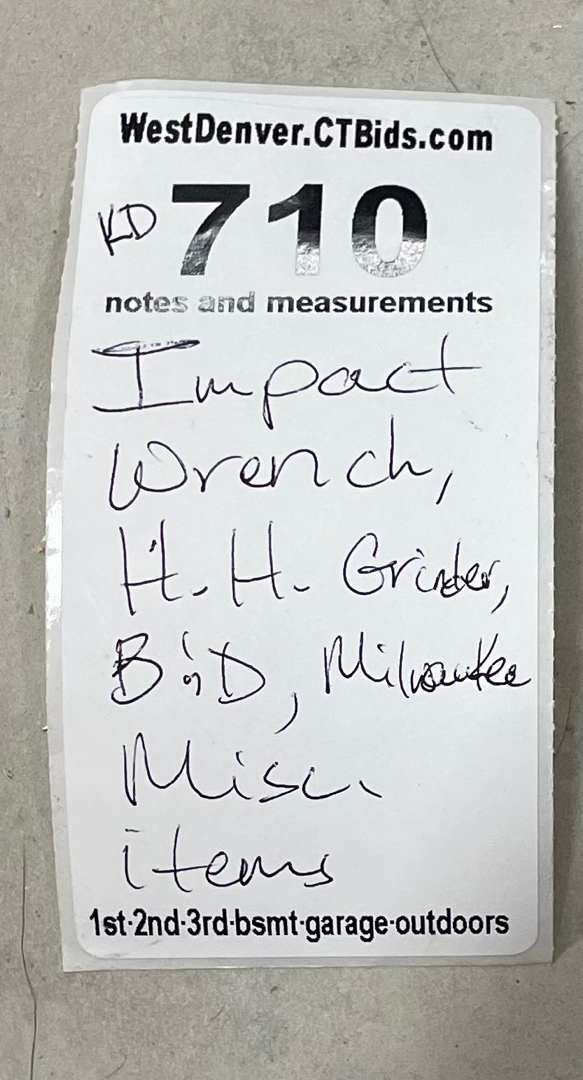 WestDenver.CTBids.com
KD 710
notes and measurements
Impact
Wrench,
H.H. Grinder,
B&D, Milwaukee
Misc.
items
1st-2nd-3rd-bsmt-garage-outdoors